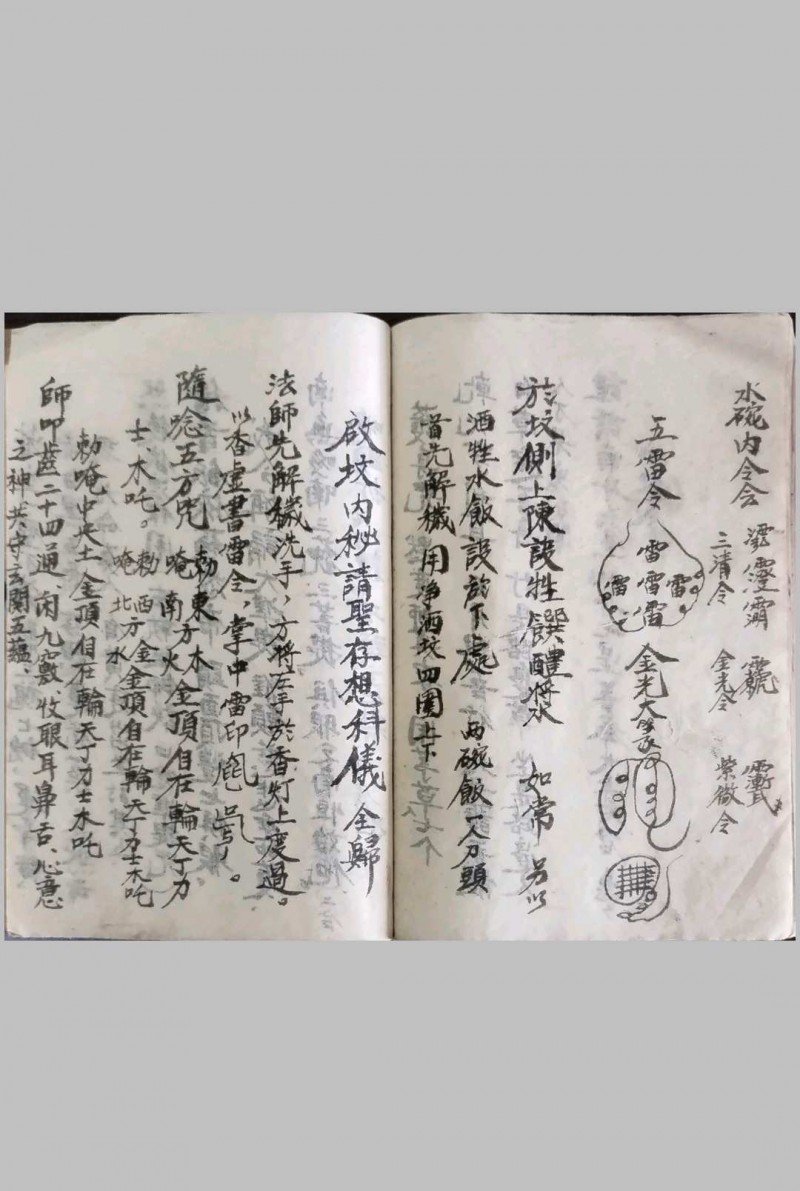 水碗内令会
三清令 金光令 紫微令
五雷令
雷
雷 雷 雷
雷
金光大
於坟侧上陳設牲饌醴漿水 如常 另以
酒牲水飯設於下處 一両碗飯一人分頭
首先解穢 用净洒坟四圍上下
啟坟内秘請聖存想科儀 全歸
法師先解穢洗手，方將左手於香灯上度過。
以香虚書雷令，掌中雷印
隨唸五方咒 勅東方木 唵南方火 金頂自在輪天丁力
士、木吒。 勅西方金 唵北方水 金頂自在輪天丁力士木吒
勅唵中央土金頂自在輪天丁力士木吒
師叩齒二十四通闭九竅、收眼耳鼻舌、心意
之神共守玄関五緼、